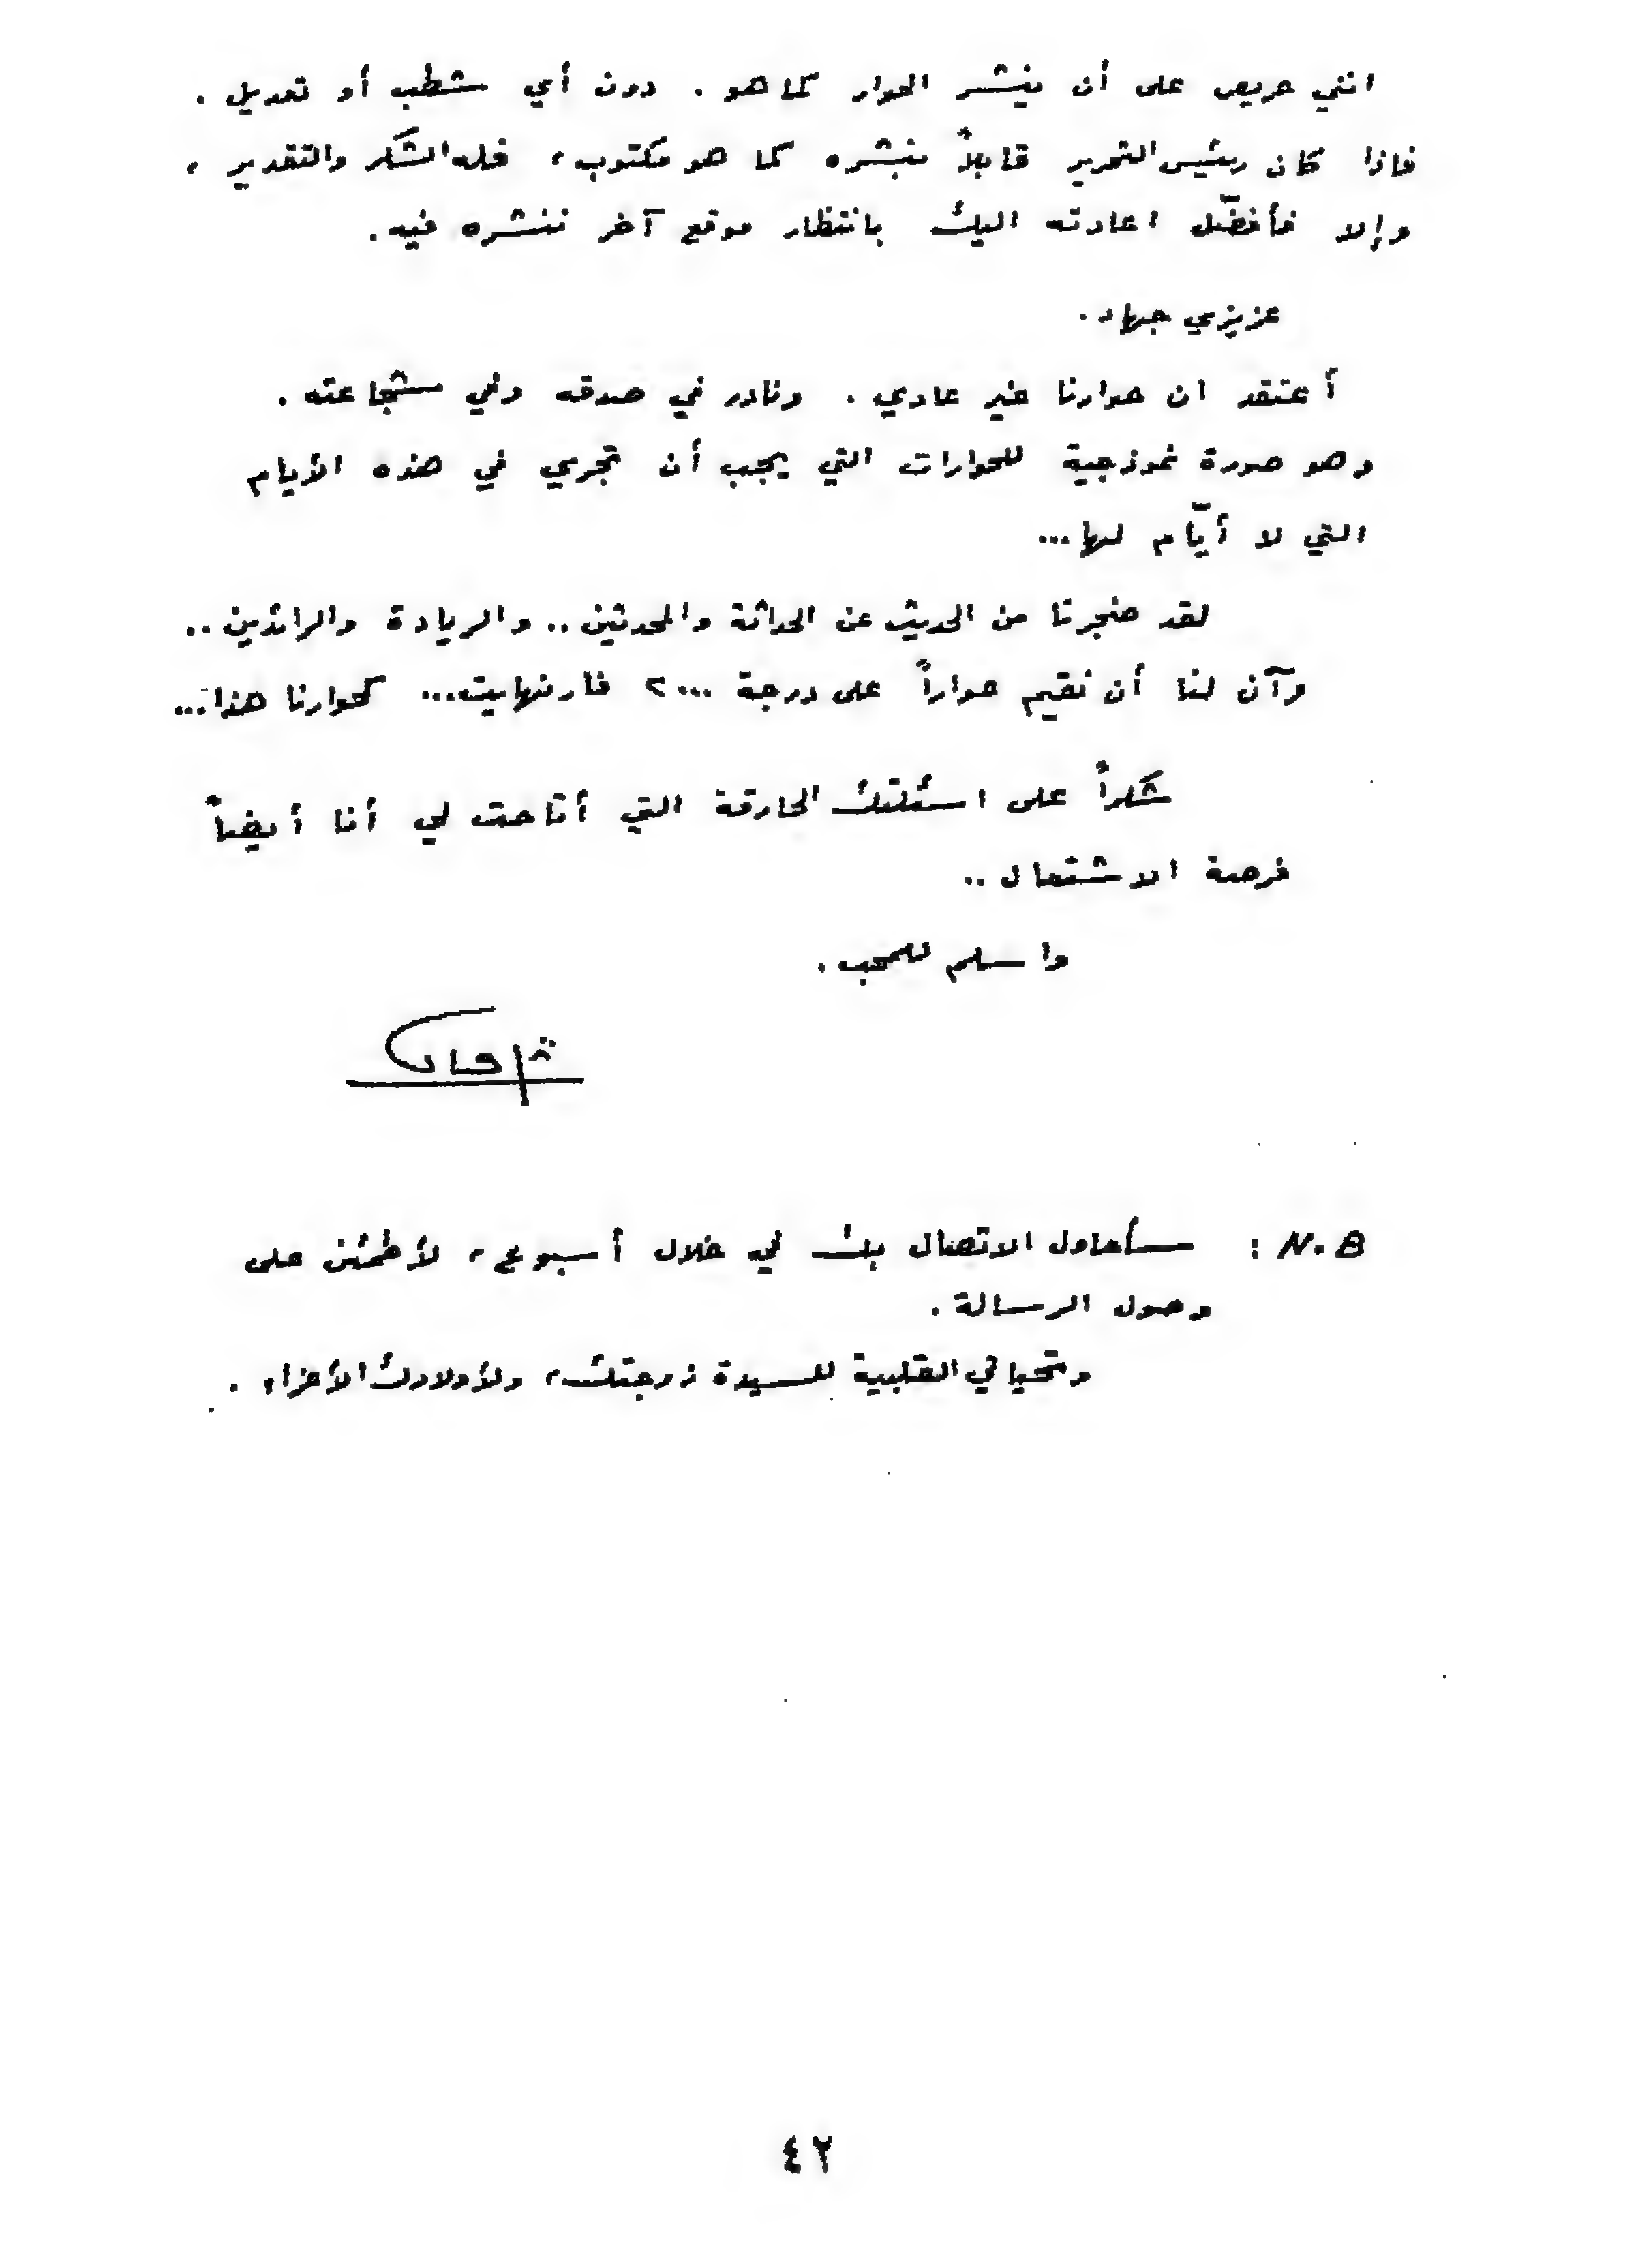 انني حريص على أن ينشر الحوار كما هو . دون أي شطب أو تعديل .
فاذا كان رئيس التحرير قابلاً بنشره كما هو مكتوب، فله الشكر والتقدير ،
وإلا فأفضّل اعادته اليك بانتظار موقع آخر ننشره فيه .
عزيزي جهاد .
أعتقد ان حوارنا غير عادي . ونادر في صدقه وفي شجاعته .
وهو صورة نموذجية للحوارات التي يجب أن تجري في هذه الأيام
التي لا أيّام لها ...
لقد ضجرنا من الحديث عن الحداثة والمحدثين .. والريادة والرائدين ..
وآن لنا أن نقيم حواراً على درجة ٢٠٠٠ فارنهايت ... كحوارنا هذا ...
شكراً على اسئلتك الحارقة التي أتاحت لي أنا أيضاً
فرصة الاشتعال ..
واسلم للمحب .
نزار قباني
N.B : سأحاول الاتصال بك في خلال أسبوع ، لأطمئن على
وصول الرسالة .
وتحياتي القلبية للسيدة زوجتك ، ولأولادك الأعزاء .
٤٢